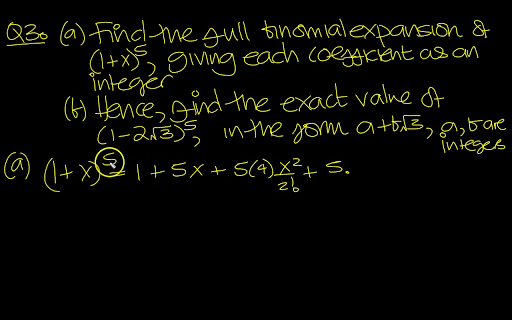 Q3. (a) Find the full binomial expansion of
(1+x)^5, giving each coefficient as an
integer
(b) Hence, find the exact value of
(1-2√3)^5, in the form a+b√3, a,b are
integers
(a) (1+x)^5 = 1 + 5x + 5(4) x^2/2! + 5.